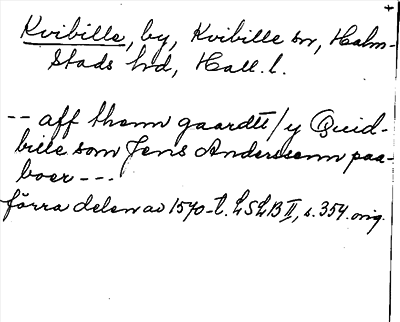 Kvibille, by, Kvibille sn, Halm-
stads hd, Hall. l.
-- aff thenn gaardtt / y Quid-
bille som Jens Anderssenn paa-
boer ---
förra delen av 1570-t. LSLB II, s. 354. orig.